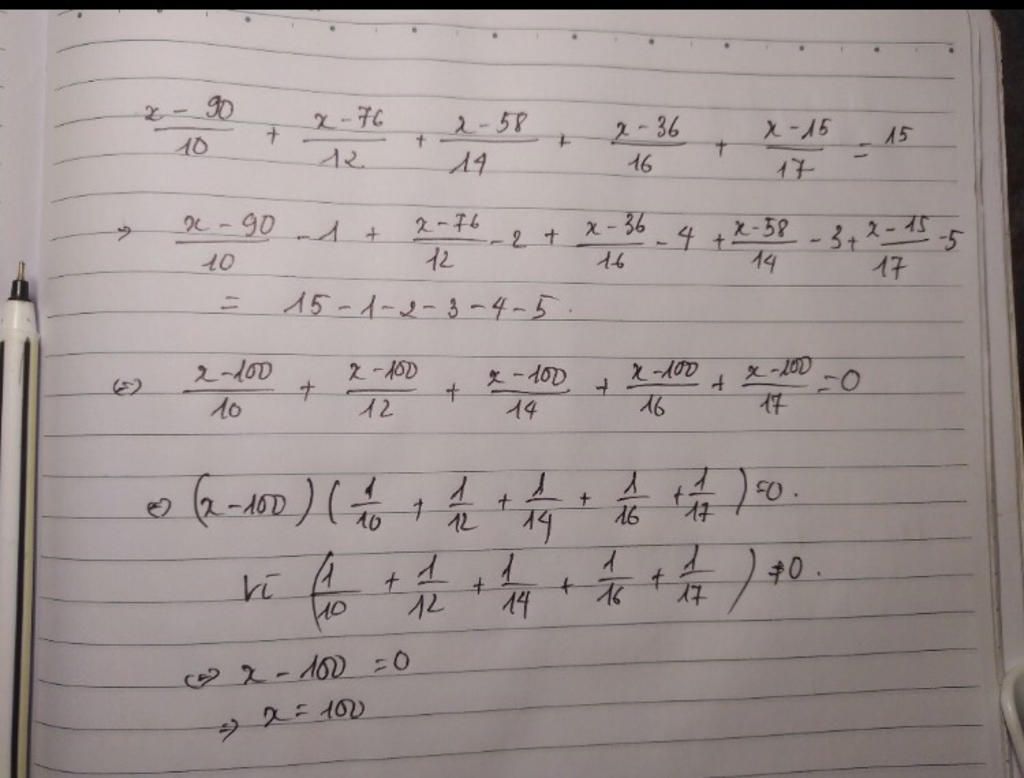 x - 90/10 + x - 76/12 + x - 58/14 + x - 36/16 + x - 15/17 = 15
→ x - 90/10 - 1 + x - 76/12 - 2 + x - 36/16 - 4 + x - 58/14 - 3 + x - 15/17 - 5
= 15 - 1 - 2 - 3 - 4 - 5.
⇔ x - 100/10 + x - 100/12 + x - 100/14 + x - 100/16 + x - 100/17 = 0
⇔ (x - 100) (1/10 + 1/12 + 1/14 + 1/16 + 1/17) = 0.
Vì (1/10 + 1/12 + 1/14 + 1/16 + 1/17) ≠ 0.
⇔ x - 100 = 0
⇒ x = 100